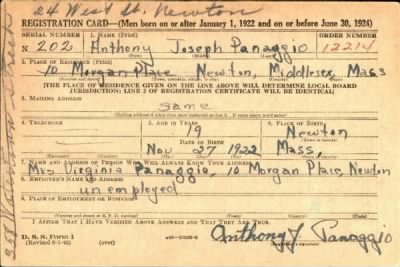 24 West St. Newton
REGISTRATION CARD—(Men born on or after January 1, 1922 and on or before June 30, 1924)
SERIAL NUMBER 1. NAME (Print) ORDER NUMBER
N 202 Anthony Joseph Panaggio 12214
(First) (Middle) (Last)
2. PLACE OF RESIDENCE (Print)
10 Morgan Place Newton, Middlesex, Mass
[THE PLACE OF RESIDENCE GIVEN ON THE LINE ABOVE WILL DETERMINE LOCAL BOARD
JURISDICTION; LINE 2 OF REGISTRATION CERTIFICATE WILL BE IDENTICAL]
3. MAILING ADDRESS
Same
4. TELEPHONE 5. AGE IN YEARS 6. PLACE OF BIRTH
19 Newton
DATE OF BIRTH
Mass,
Nov 27 1922
7. NAME AND ADDRESS OF PERSON WHO WILL ALWAYS KNOW YOUR ADDRESS
Mrs Virginia Panaggio, 10 Morgan Place, Newton
8. EMPLOYER'S NAME AND ADDRESS
unemployed
9. PLACE OF EMPLOYMENT OR BUSINESS
I AFFIRM THAT I HAVE VERIFIED ABOVE ANSWERS AND THAT THEY ARE TRUE.
D. S. S. FORM 1
Anthony J. Panaggio